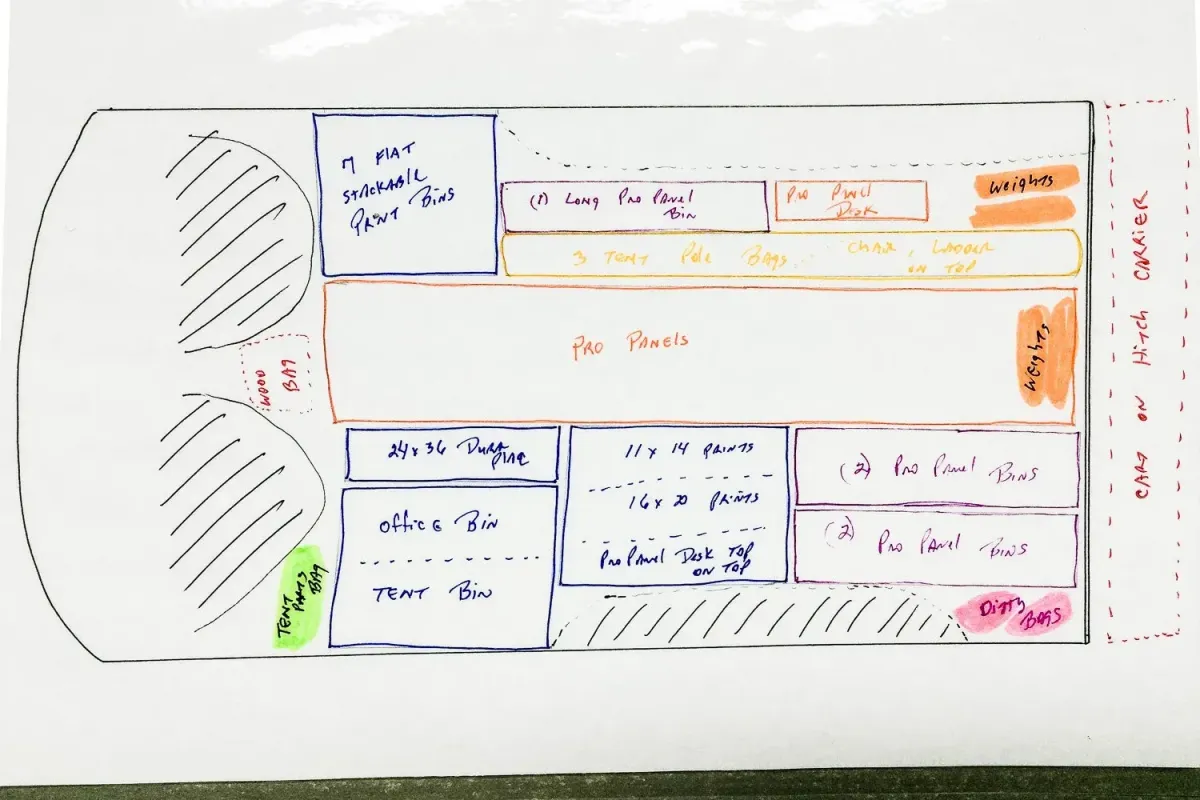 7 FLAT
STACKABLE
PRINT BINS
(1) LONG PRO PANEL
BIN
PRO PANEL
DESK
Weights
3 TENT POLE BAGS. CHAIR, LADDER
ON TOP
PRO PANELS
Weights
WOOD
BAG
24 x 36 DURA
PLAQ
OFFICE BIN
TENT BIN
11 x 14 PRINTS
16 x 20 PRINTS
PRO PANEL DESK TOP
ON TOP
(2) PRO PANEL BINS
(2) PRO PANEL BINS
TENT
PARTS
BAG
DITTY
BAGS
CART ON HITCH CARRIER